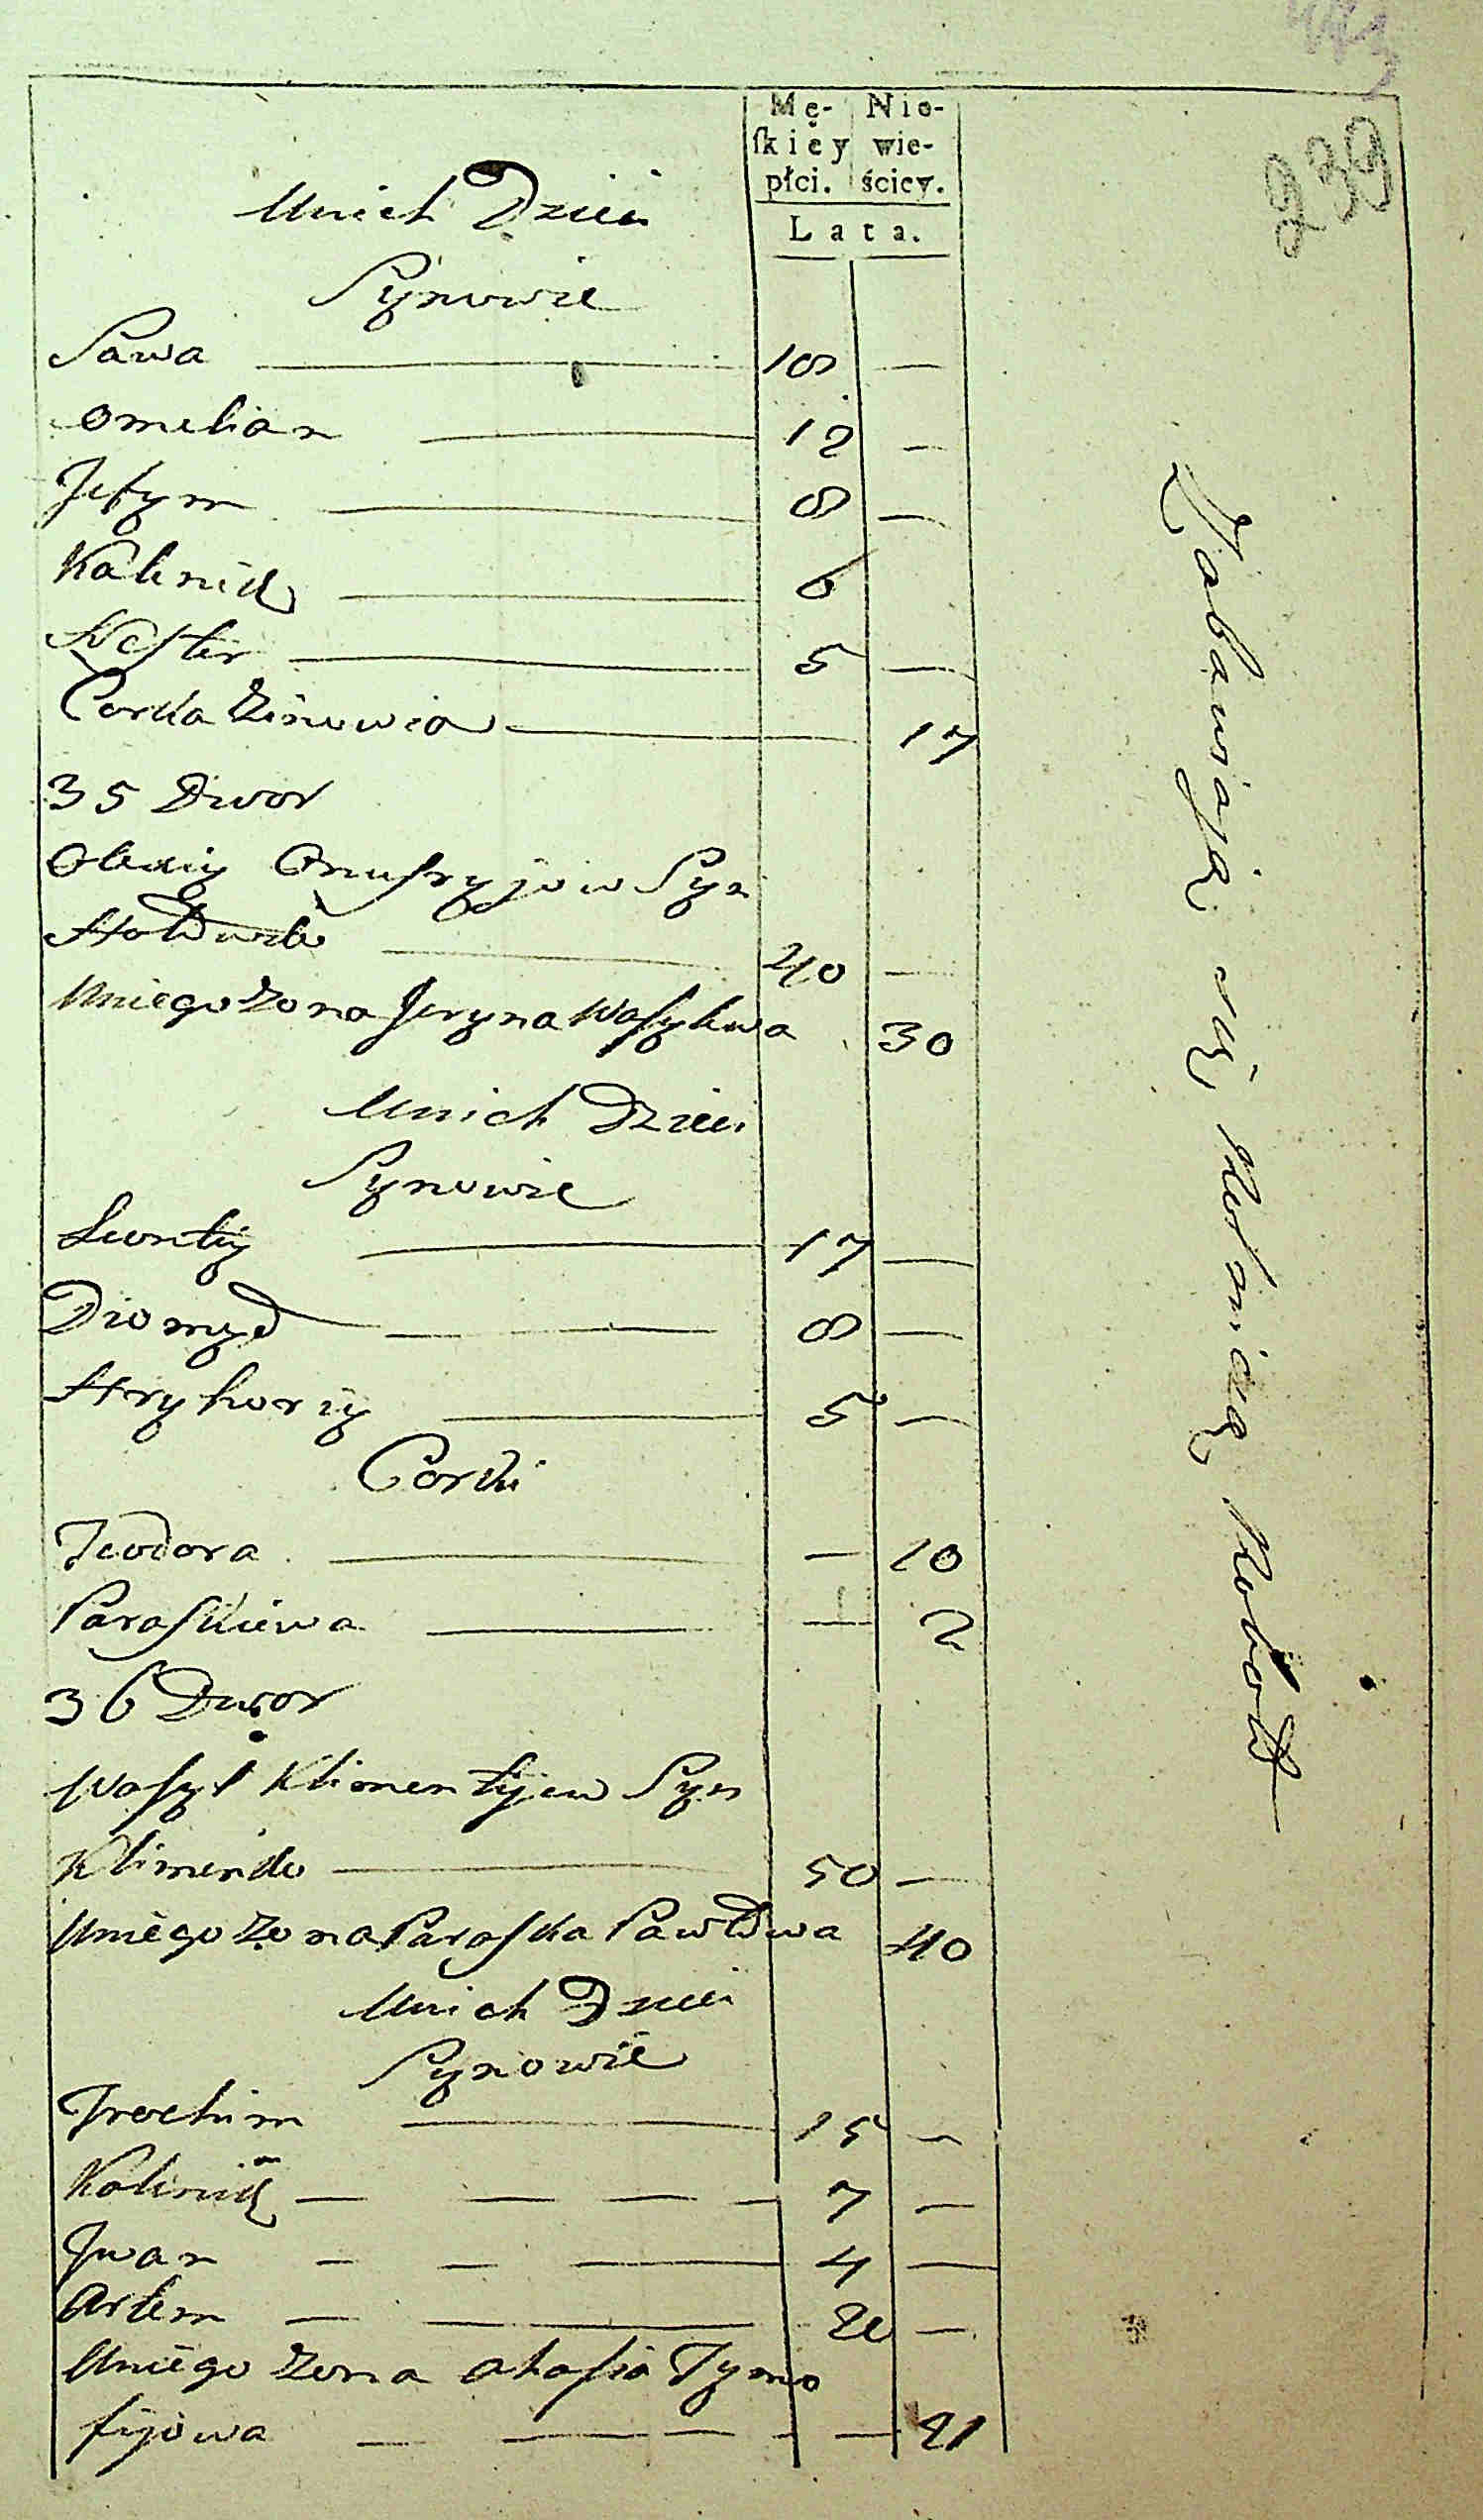 239
Mę- Nie-
ſkiey wie-
płci. ścicy.
Lata.
Unich Dzieci
Synowie
Sawa — 18 —
Omelian — 12 —
Jefym — 8 —
Kalenik — 6
Nester — 5 —
Corka Zinowia — 17
35 Dwor
Olexiy Onufryjow Syn
— 40 —
Uniego Zona Jeryna Wasylowa 30
Unich Dzieci
Synowie
Leontiy — 17 —
Diomyd — 8 —
Hryhoriy — 5 —
Corki
Teodora — — 10
Paraskiewa — — 2
36 Dwor
Wasyl Klimentijew Syn
Klimenko — 50 —
Uniego Zona Paraska Pawłowa 40
Unich Dzieci
Synowie
Trochim — 15 —
Kalenik — — — — 7 —
Jwan — — — 4 —
Artem — — 20 —
Uniego Zona Ahafia Tymo
fijowa — — — — — 21
Zabawiają się Rolniczą Robotą